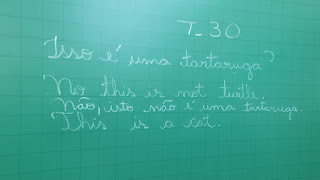 T_30
Isso é uma tartaruga?
No this is not turtle.
Não, isto não é uma tartaruga.
This is a cat.